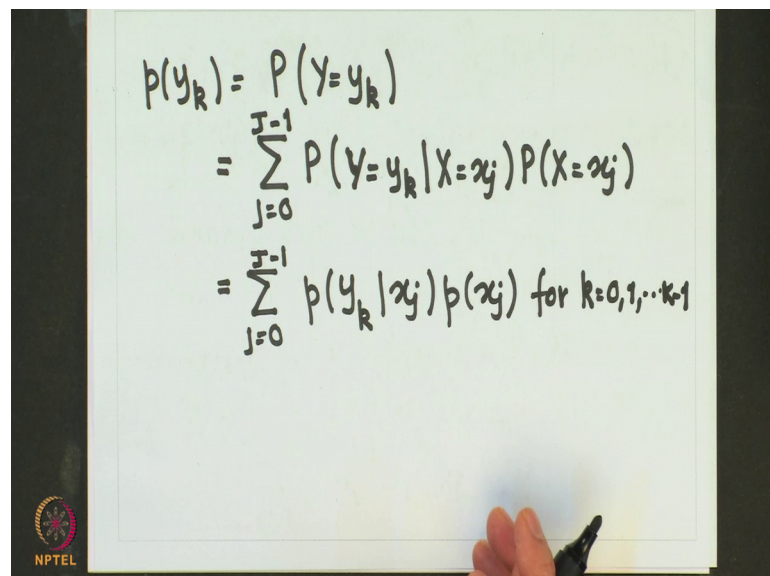 p(y_k) = P(Y=y_k)
= \sum_{j=0}^{J-1} P(Y=y_k | X=x_j) P(X=x_j)
= \sum_{j=0}^{J-1} p(y_k | x_j) p(x_j) for k=0,1,..K-1
NPTEL